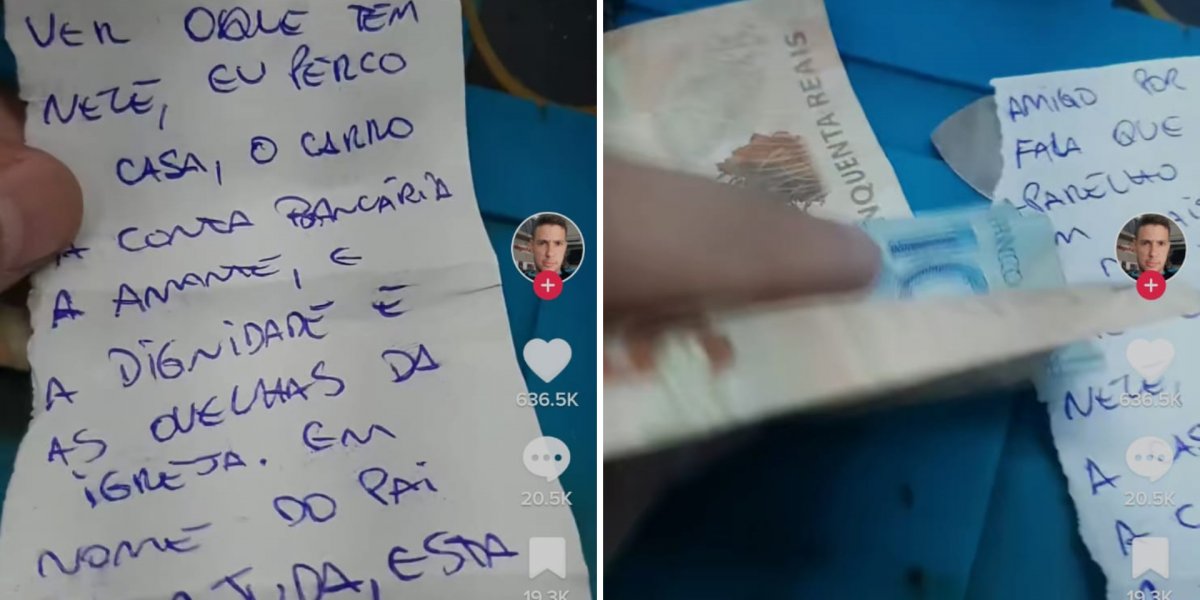 VER OQUE TEM
NELE, EU PERCO
CASA, O CARRO
A CONTA BANCÁRIA
A AMANTE, E
A DIGNIDADE E
AS OVELHAS DA
IGREJA. EM
NOME DO PAI
JUDA, ESTA
636.5K
20.5K
19.3K
NQUENTA REAIS
AMIGO POR
FALA QUE
PARELHO
M
NELE,
A
A C
A
636.5K
20.5K
19.3K